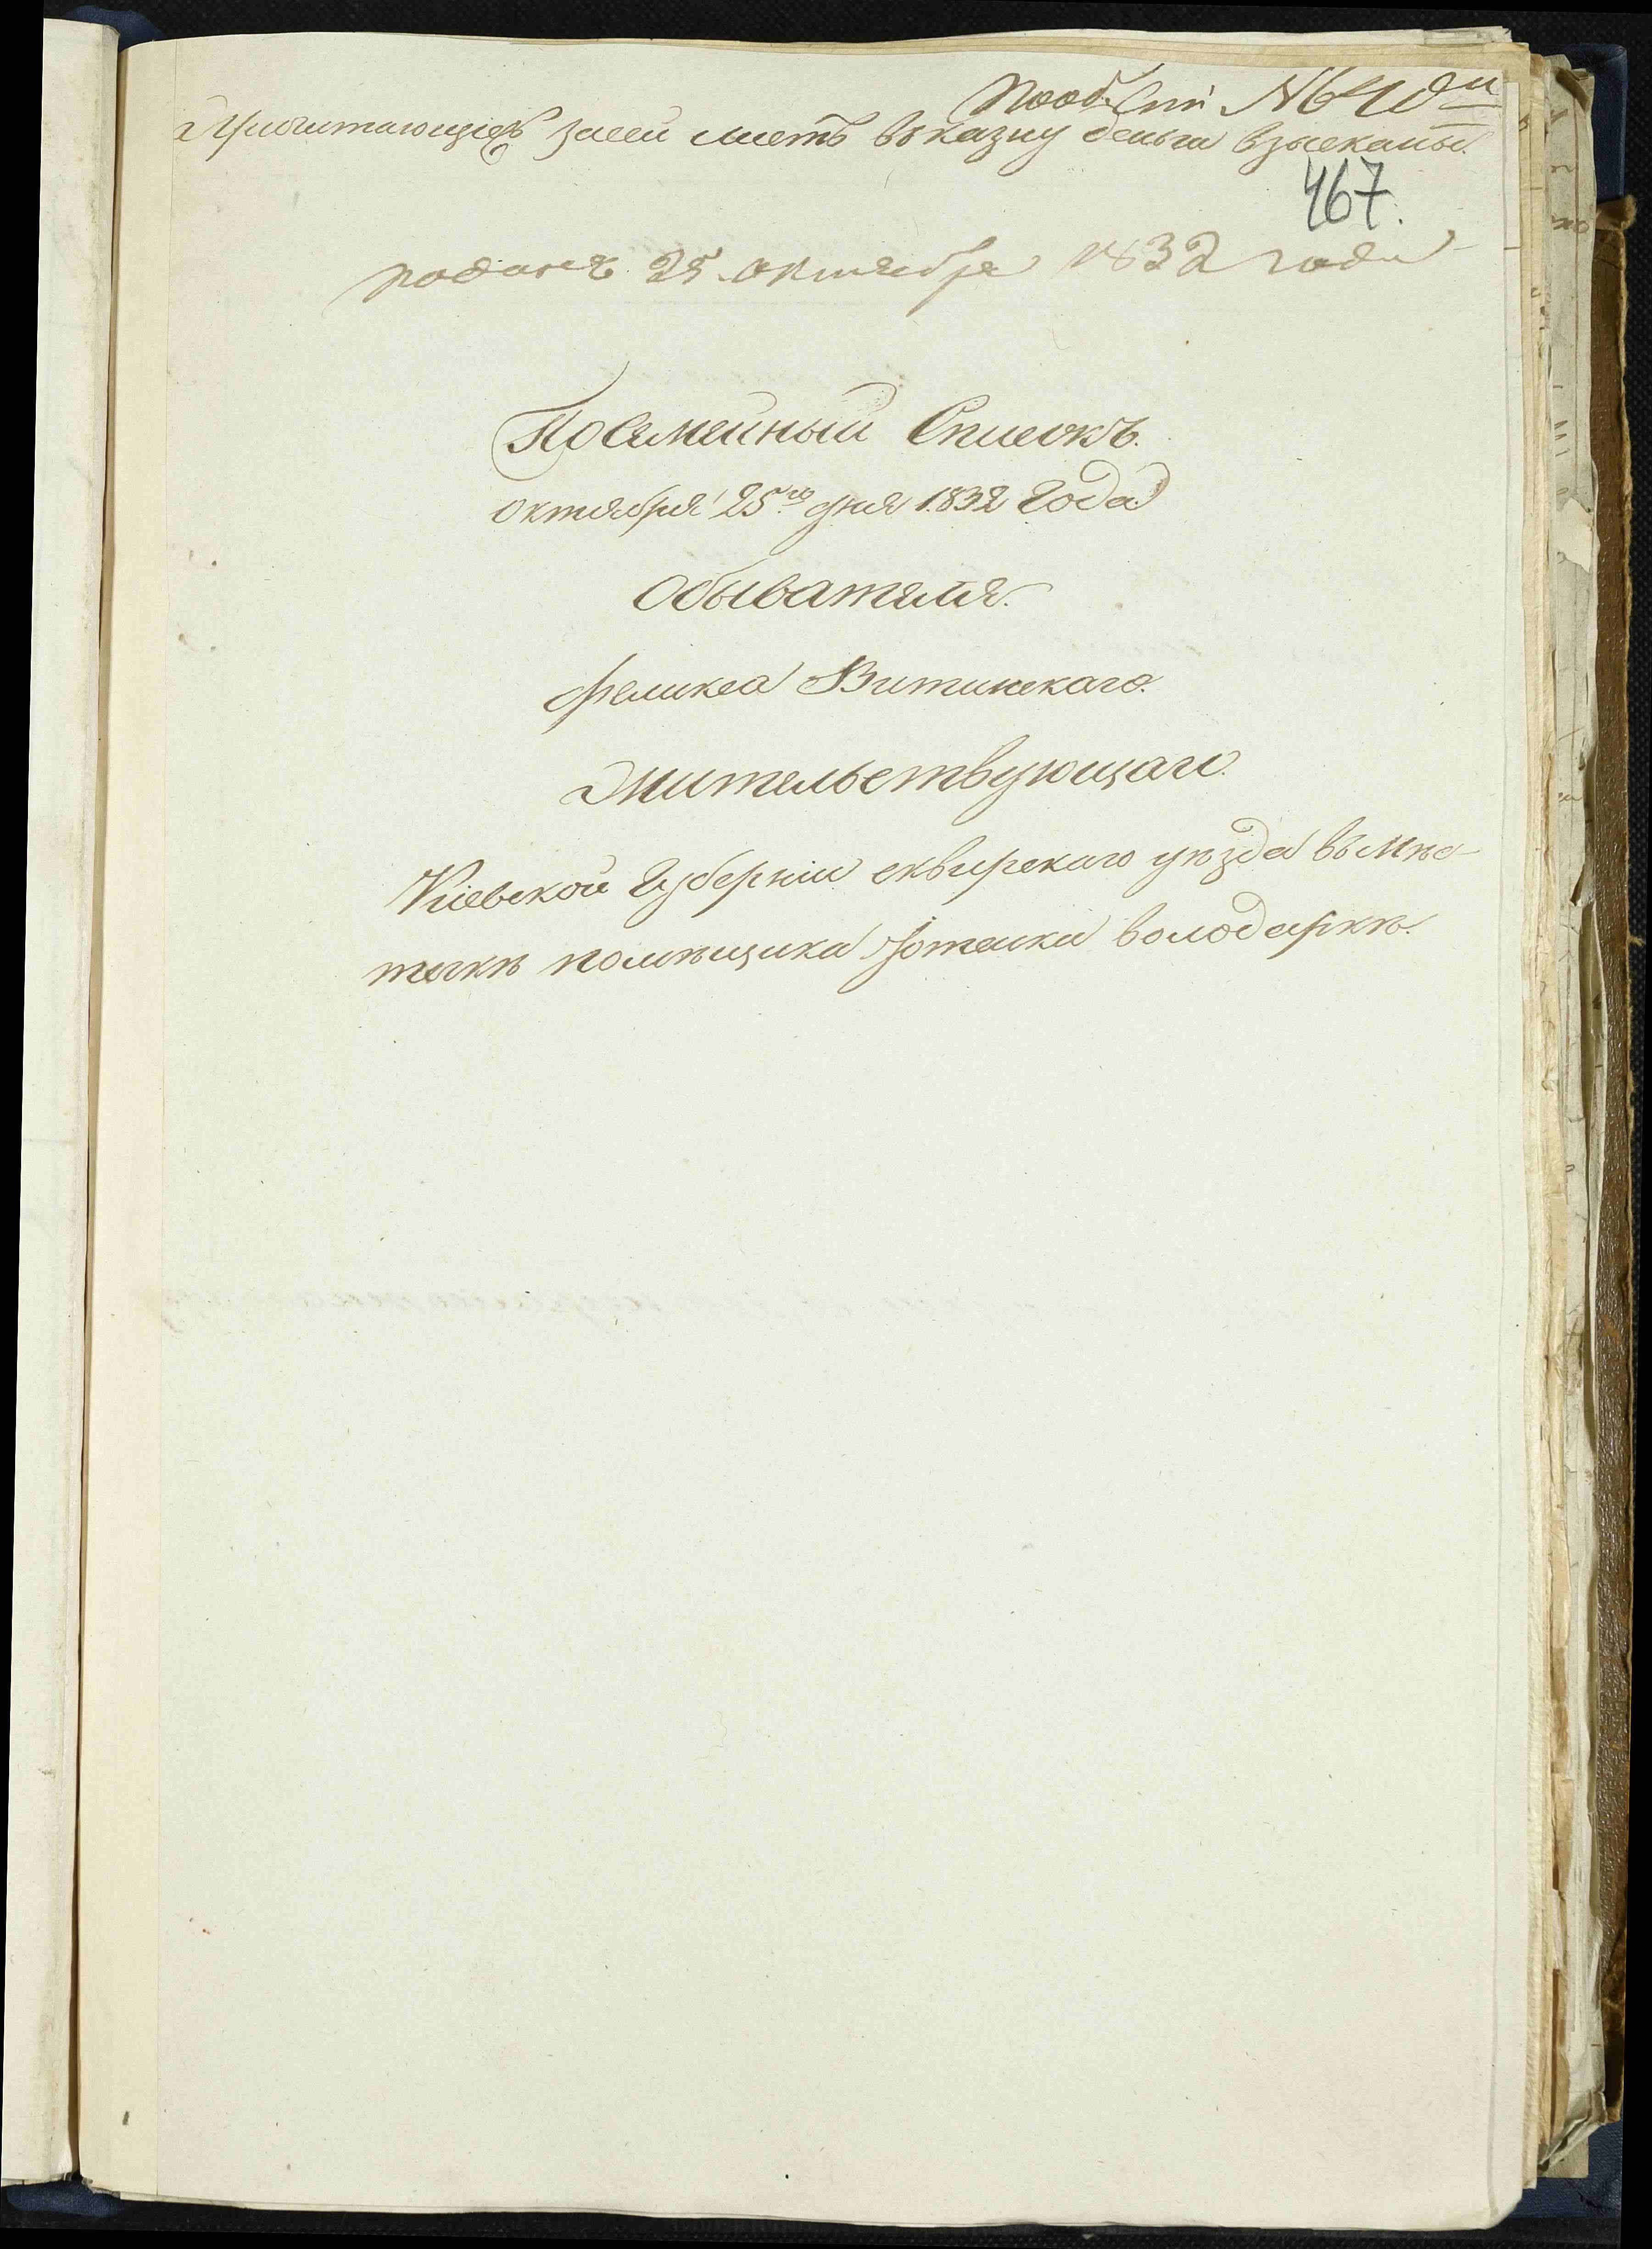 Причитающіесь засей листъ въ казну деньги взысканы.
467.
поданъ 25 октября 1832 года
Посемейный Списокъ.
октября 25го дня 1832 Года
Обывателя.
Феликса Витинскаго.
Жительствующаго.
Кіевской Губерніи сквирскаго уѣзда въ мѣс-
течкѣ помѣщика Потоцки володаркѣ.